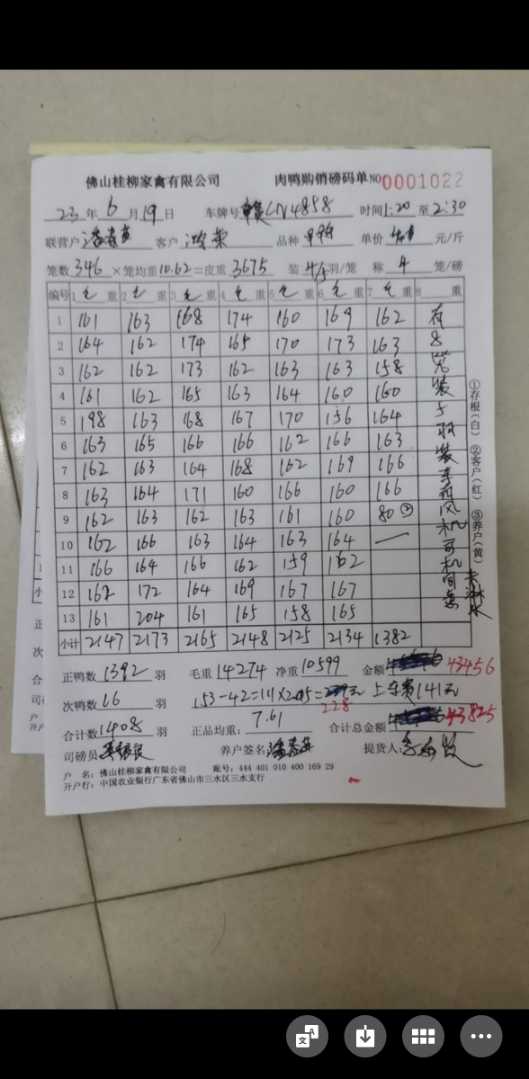 佛山桂柳家禽有限公司 肉鸭购销磅码单 NO 0001022
23 年 6 月 19 日 车牌号 4858 时间 1:20 至 2:30
联营户 客户 品种 单价 元/斤
笼数 346 × 笼均重 10.62 = 皮重 3675 装 羽/笼 称 4 笼/磅
编号 1 毛 重 2 毛 重 3 毛 重 4 毛 重 5 毛 重 6 毛 重 7 毛 重 8 重
1 161 163 168 174 160 169 162
2 164 162 174 165 170 173 163
3 162 162 173 162 163 163 158
4 161 162 165 163 164 160 160
5 198 163 168 167 170 156 164
6 163 165 166 166 162 166 163
7 162 163 164 168 162 169 166
8 163 164 171 160 166 160 166
9 162 163 162 163 161 160 80 ②
10 162 166 163 164 163 164 —
11 166 164 166 162 159 162
12 162 172 164 169 167 167
13 161 204 161 165 158 165
小计 2147 2173 2165 2148 2125 2134 1382
正鸭数 1392 羽 毛重 14274 净重 10599 金额 43456
次鸭数 16 羽 153-42=111×2.05= 228 上车费141元
合计数 1408 羽 正品均重: 7.61 合计总金额 43825
司磅员 养户签名 提货人
户 名: 佛山桂柳家禽有限公司 账号: 444 401 010 400 169 29
开户行: 中国农业银行广东省佛山市三水区三水支行
①存根(白) ②客户(红) ③养户(黄)